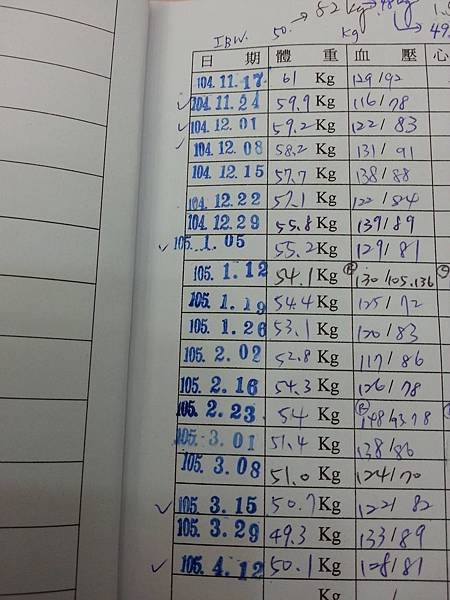 → 82 kg
IBW. 50. kg
日期 體重 血壓 心
104.11.17 61 Kg 129/92
104.11.24 59.9 Kg 116/78
104.12.01 59.2 Kg 122/83
104.12.08 58.2 Kg 131/91
104.12.15 57.7 Kg 138/88
104.12.22 57.1 Kg 122/
104.12.29 55.8 Kg 139/89
105.1.05 55.2 Kg 129/81
105.1.12 54.1 Kg 130/105.136
105.1.19 54.4 Kg 125/72
105.1.26 53.1 Kg 120/83
105.2.02 52.8 Kg 117/86
105.2.16 54.3 Kg 126/78
105.2.23 54 Kg 148/
105.3.01 51.4 Kg 138/86
105.3.08 51.0 Kg 124/70
105.3.15 50.7 Kg 122/82
105.3.29 49.3 Kg 133/89
105.4.12 50.1 Kg 128/81
Kg /